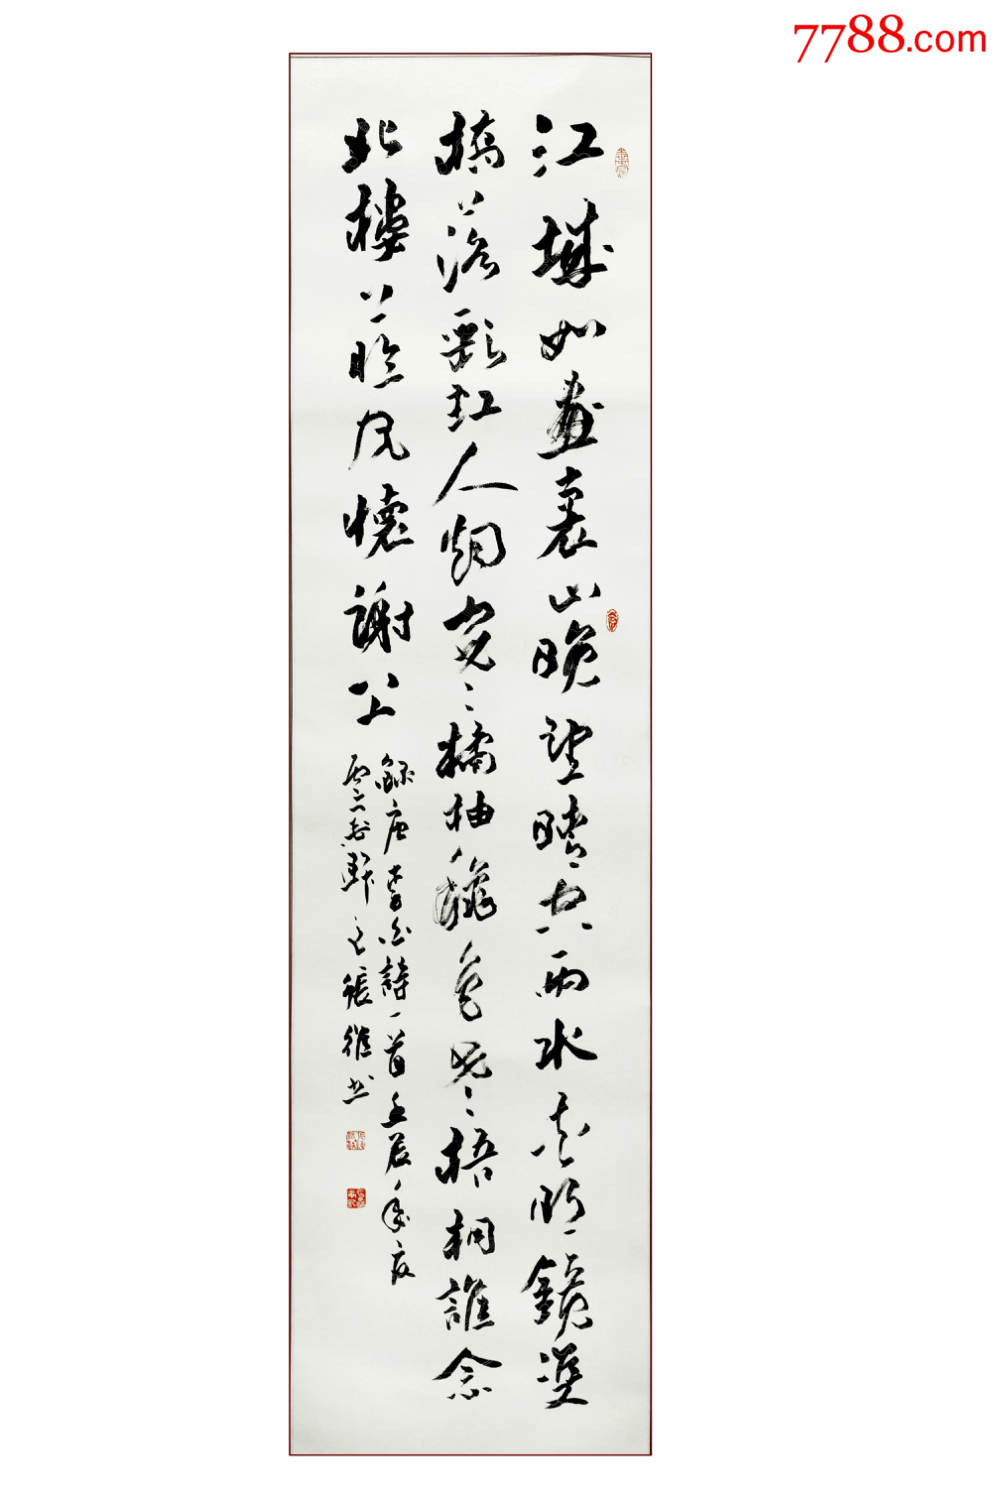 江城如畫裏山晚望晴空兩水夾明鏡雙
橋落彩虹人烟寒橘柚龝色老梧桐誰念
北樓上臨風懷謝公
錄唐李白詩一首壬辰年夏
雲谷軒主張維書
7788.com